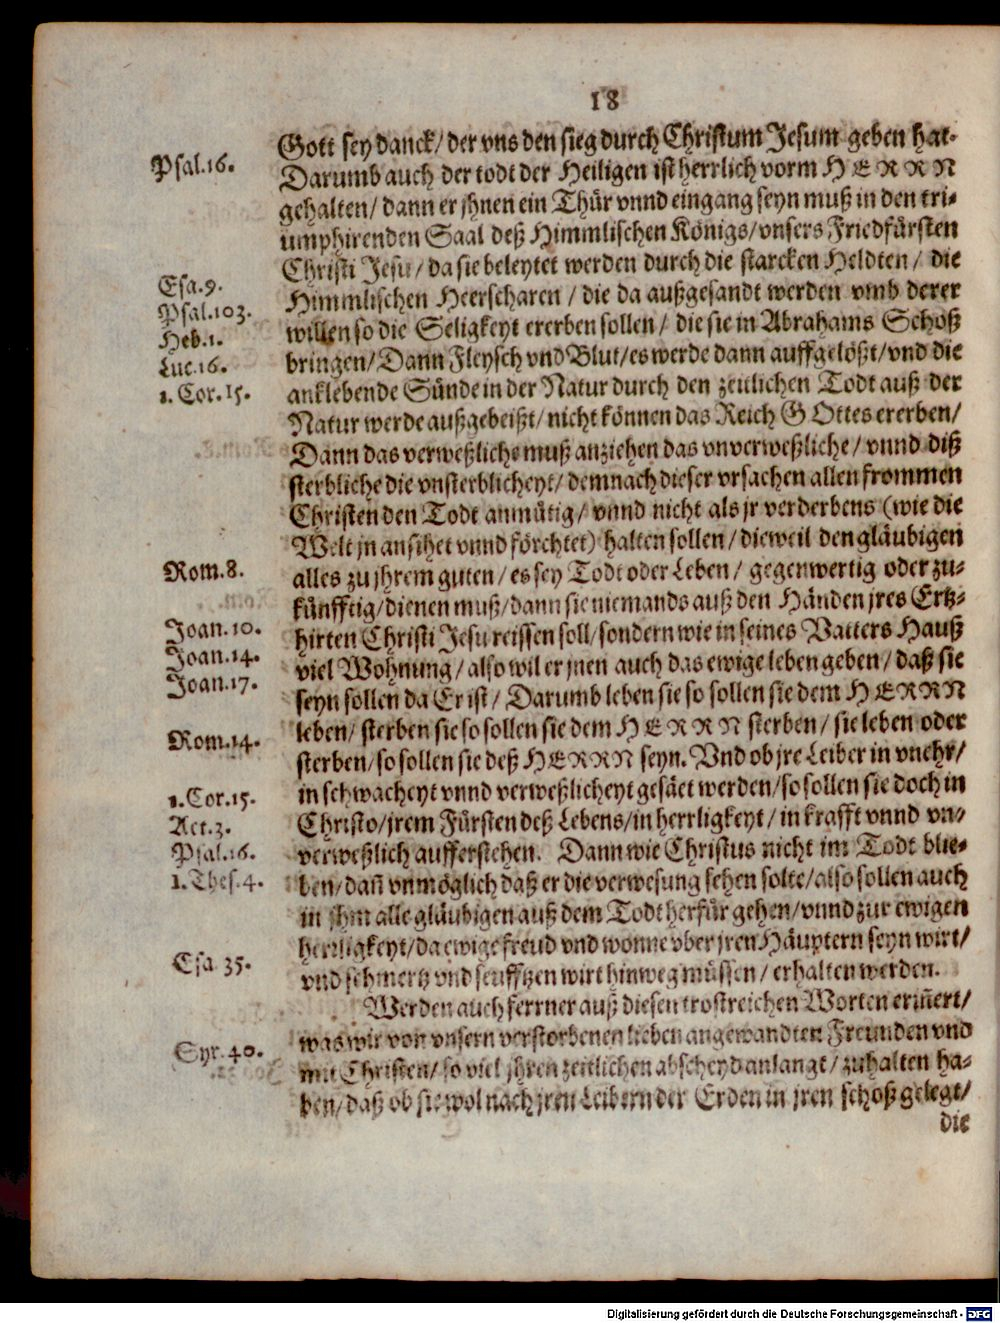 18
Gott sey danck/ der vns den sieg durch Christum Jesum geben hat.
Psal.16.
Darumb auch der todt der Heiligen ist herrlich vorm HERRN
gehalten/ dann er jhnen ein Thür vnnd eingang seyn muß in den tri-
umphirenden Saal deß Himmlischen Königs/ vnsers Friedfürsten
Christi Jesu/ da sie beleytet werden durch die starcken Heldten/ die
Esa.9.
Himmlischen Heerscharen/ die da außgesandt werden vmb derer
Psal.103.
willen so die Seligkeyt ererben sollen/ die sie in Abrahams Schoß
Heb.1.
bringen/ Dann Fleysch vnd Blut/ es werde dann auffgelößt/ vnd die
Luc.16.
anklebende Sünde in der Natur durch den zeitlichen Todt auß der
1. Cor. 15.
Natur werde außgebeißt/ nicht können das Reich GOttes ererben/
Dann das verweßliche muß anziehen das vnverweßliche/ vnnd diß
sterbliche die vnsterblicheyt/ demnach dieser vrsachen allen frommen
Christen den Todt anmütig/ vnnd nicht als jr verderbens (wie die
Welt jn ansihet vnnd förchtet) halten sollen/ dieweil den gläubigen
Rom.8.
alles zu jhrem guten/ es sey Todt oder Leben/ gegenwertig oder zu-
künfftig/ dienen muß/ dann sie niemands auß den Händen jres Ertz-
Joan. 10.
hirten Christi Jesu reissen soll/ sondern wie in seines Vatters Hauß
Joan. 14.
viel Wohnung/ also wil er jnen auch das ewige leben geben/ daß sie
Joan. 17.
seyn sollen da Er ist/ Darumb leben sie so sollen sie dem HERRN
leben/ sterben sie so sollen sie dem HERRN sterben/ sie leben oder
Rom.14.
sterben/ so sollen sie deß HERRN seyn. Vnd ob jre Leiber in vnehr/
in schwacheyt vnnd verweßlicheyt gesäet werden/ so sollen sie doch in
1. Cor. 15.
Christo/ jrem Fürsten deß Lebens/ in herrligkeyt/ in krafft vnnd vn-
Act. 3.
verweßlich aufferstehen. Dann wie Christus nicht im Todt blie-
Psal.16.
ben/ dañ vnmöglich daß er die verwesung sehen solte/ also sollen auch
1. Thes. 4.
in jhm alle gläubigen auß dem Todt herfür gehen/ vnnd zur ewigen
herrligkeyt/ da ewige freud vnd wonne vber jren Häuptern seyn wirt/
Esa 35.
vnd schmertz vnd seufftzen wirt hinweg müssen/ erhalten werden.
Werden auch ferrner auß diesen trostreichen Worten eriñert/
was wir von vnsern verstorbenen lieben angewandten Freunden vnd
Syr. 40.
mit Christen/ so viel jhren zeitlichen abscheyd anlangt/ zuhalten ha-
ben/ daß ob sie wol nach jren Leibern der Erden in jren schoß gelegt/
die
Digitalisierung gefördert durch die Deutsche Forschungsgemeinschaft - DFG